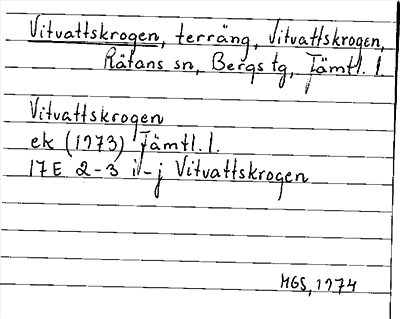 Vitvattskrogen, terräng, Vitvattskrogen,
Rätans sn, Bergs tg, Jämtl. l.
Vitvattskrogen
ek (1973) Jämtl. l.
17E 2-3 i-j Vitvattskrogen
MGS, 1974